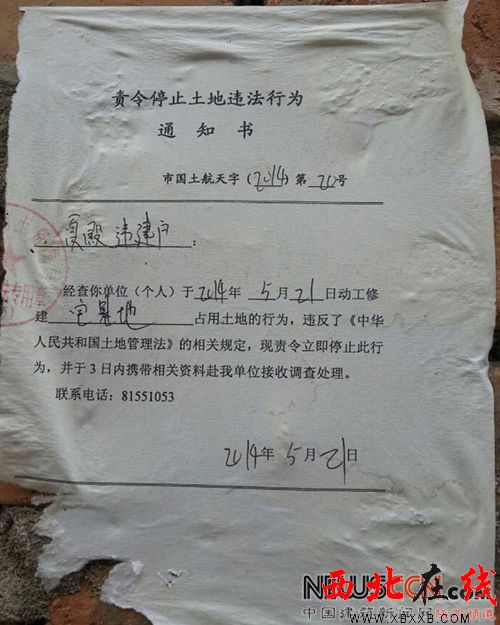 责令停止土地违法行为
通知书
市国土航天字（2014）第20号
夏殿违建户：
经查你单位（个人）于2014年5月21日动工修
建宅基地占用土地的行为，违反了《中华
人民共和国土地管理法》的相关规定，现责令立即停止此行
为，并于3日内携带相关资料赴我单位接收调查处理。
联系电话：81551053
2014年5月21日
专用章
西北在线
中国建筑新闻网
www.xbxxb.com